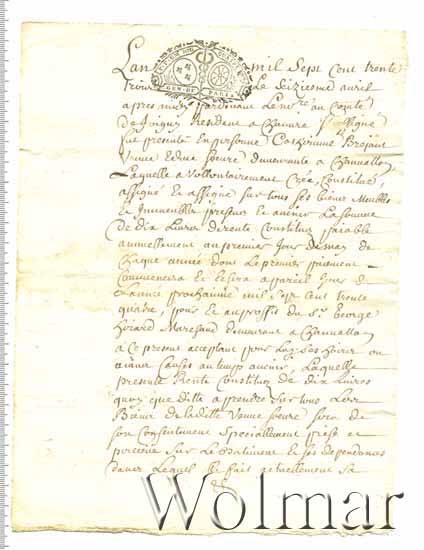 L'an mil Sept Cent trente
trois Le Seiziesme avril
apres midy Pardevant Le no.re au Comté
de Joigny Residant a Chamvre Soussigné
fut presente En personne Catherine
Veuve Edme Seurre demeurante a Chanvallon
Laquelle a Vollontairement Creée, Constitué,
assigné Et assigne sur tous ses biens Meubles
Et Immeubles presens Et avenir La somme
de dix Livres de rente Constitué païable
annuellement au premier Jour de may de
Chaque année dont Le premier paiement
Commencera Et Echera a pareil Jour de
L'année prochainne mil Sept Cent trente
quatre, pour Et au proffit du Sr. George
Marchand demeurant a Chanvallon
a Ce present acceptant pour Luy Ses Hoirs ou
aians Causes au temps avenir, Laquelle
presente Rente Constitué de dix Livres
quoy que ditte a prendre sur tous Les
Biens de Ladite Veuve Seurre sera de
son Consentement Specialement prise et
perceüe sur Le Batiment Et ses dependances
dans Lequel Elle fait actuellement sa
GEN. DE PARIS
Wolmar